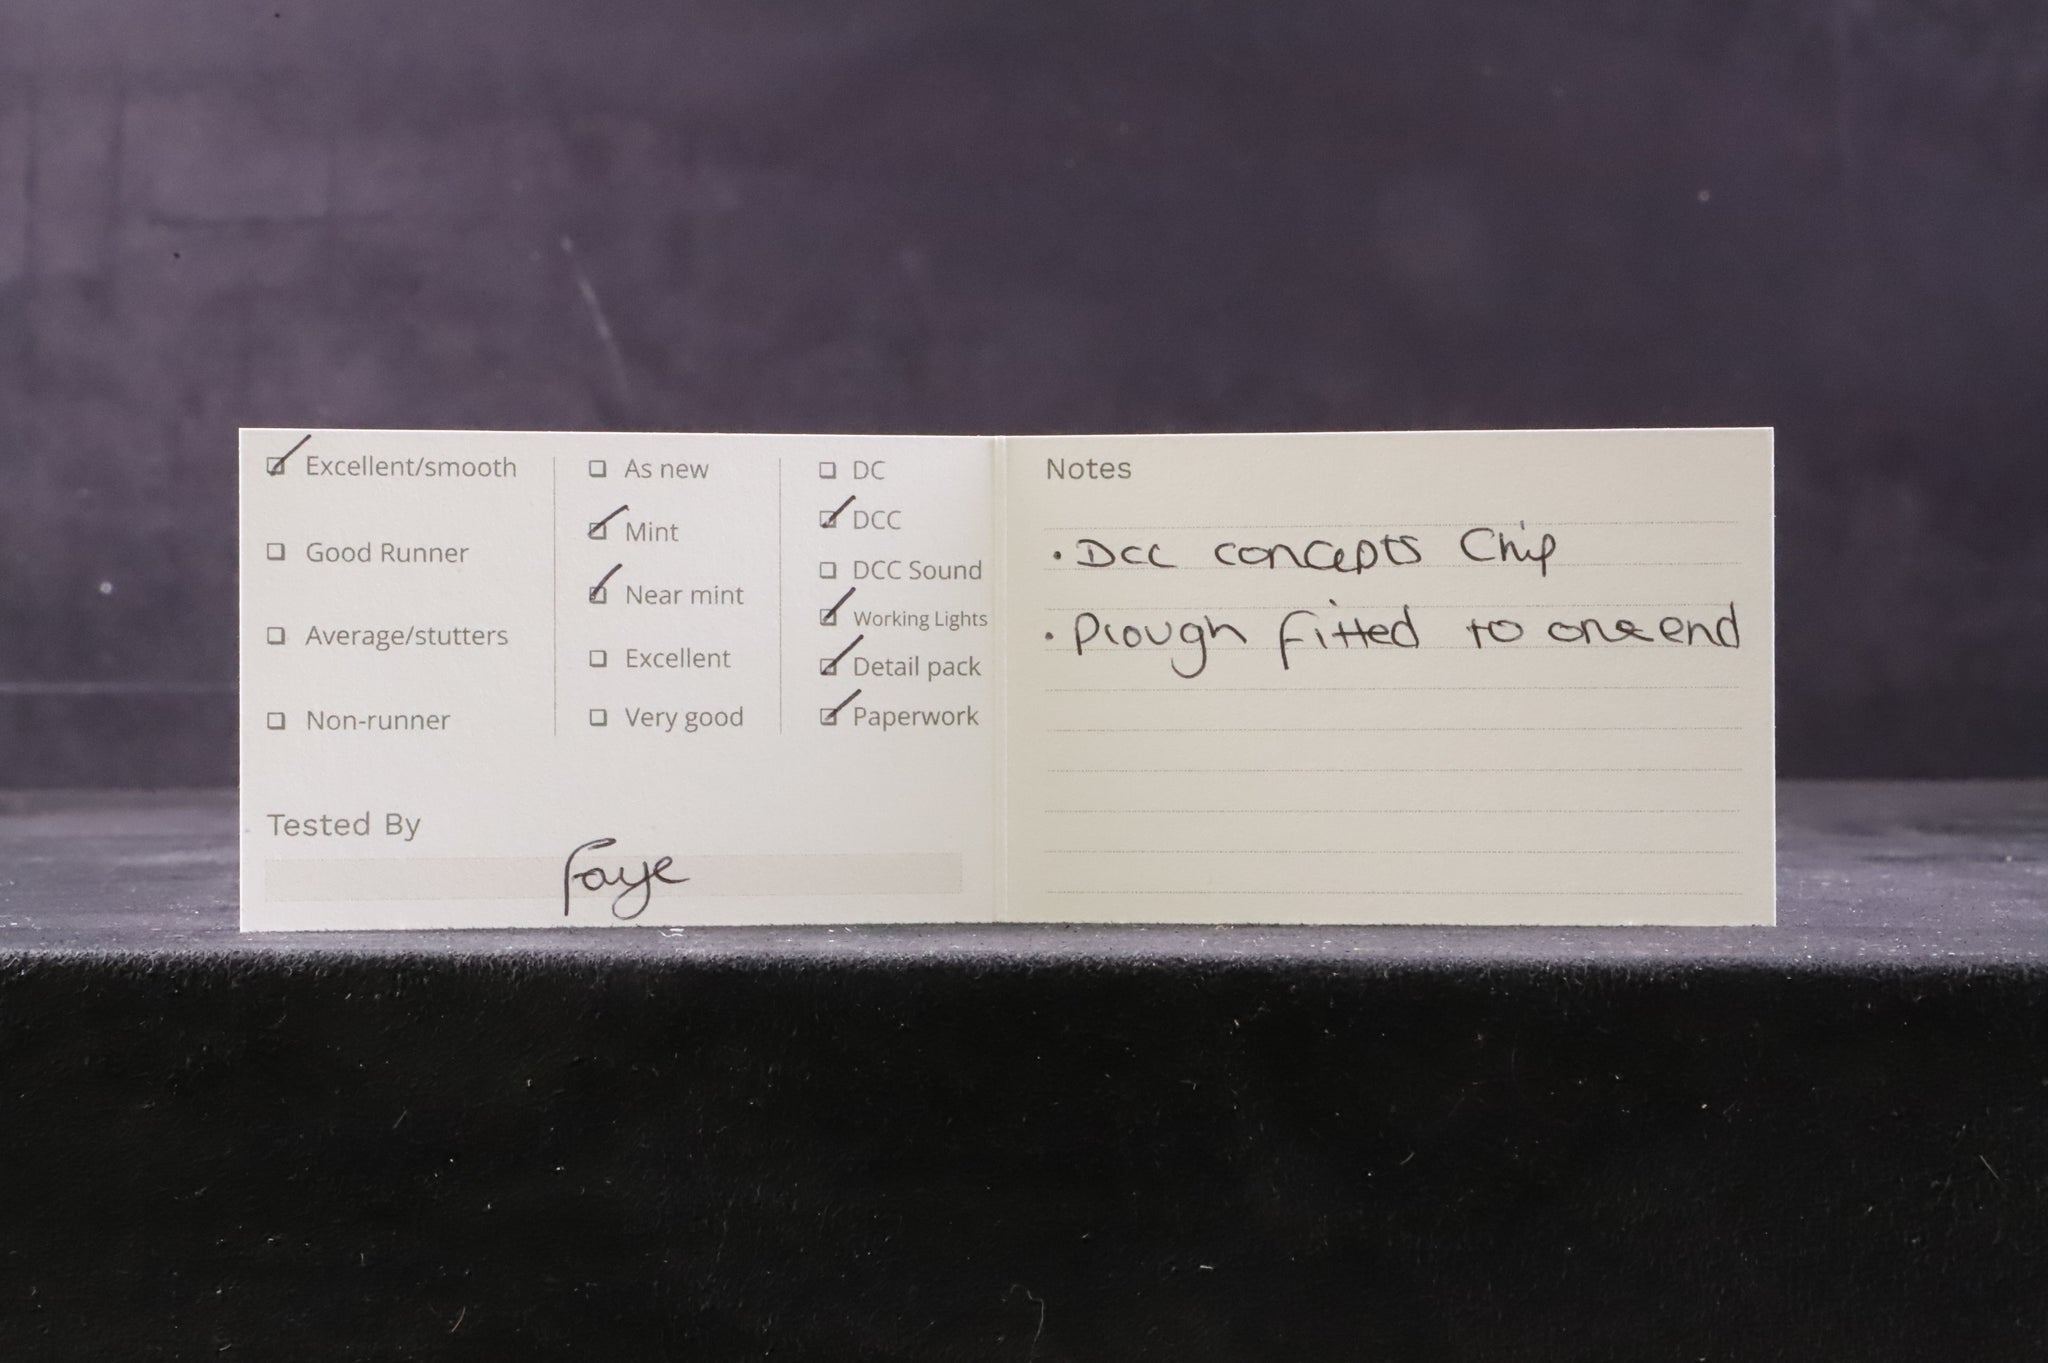 Excellent/smooth
Good Runner
Average/stutters
Non-runner
As new
Mint
Near mint
Excellent
Very good
DC
DCC
DCC Sound
Working Lights
Detail pack
Paperwork
Tested By
Faye
Notes
• DCC concepts Chip
• Plough fitted to one end